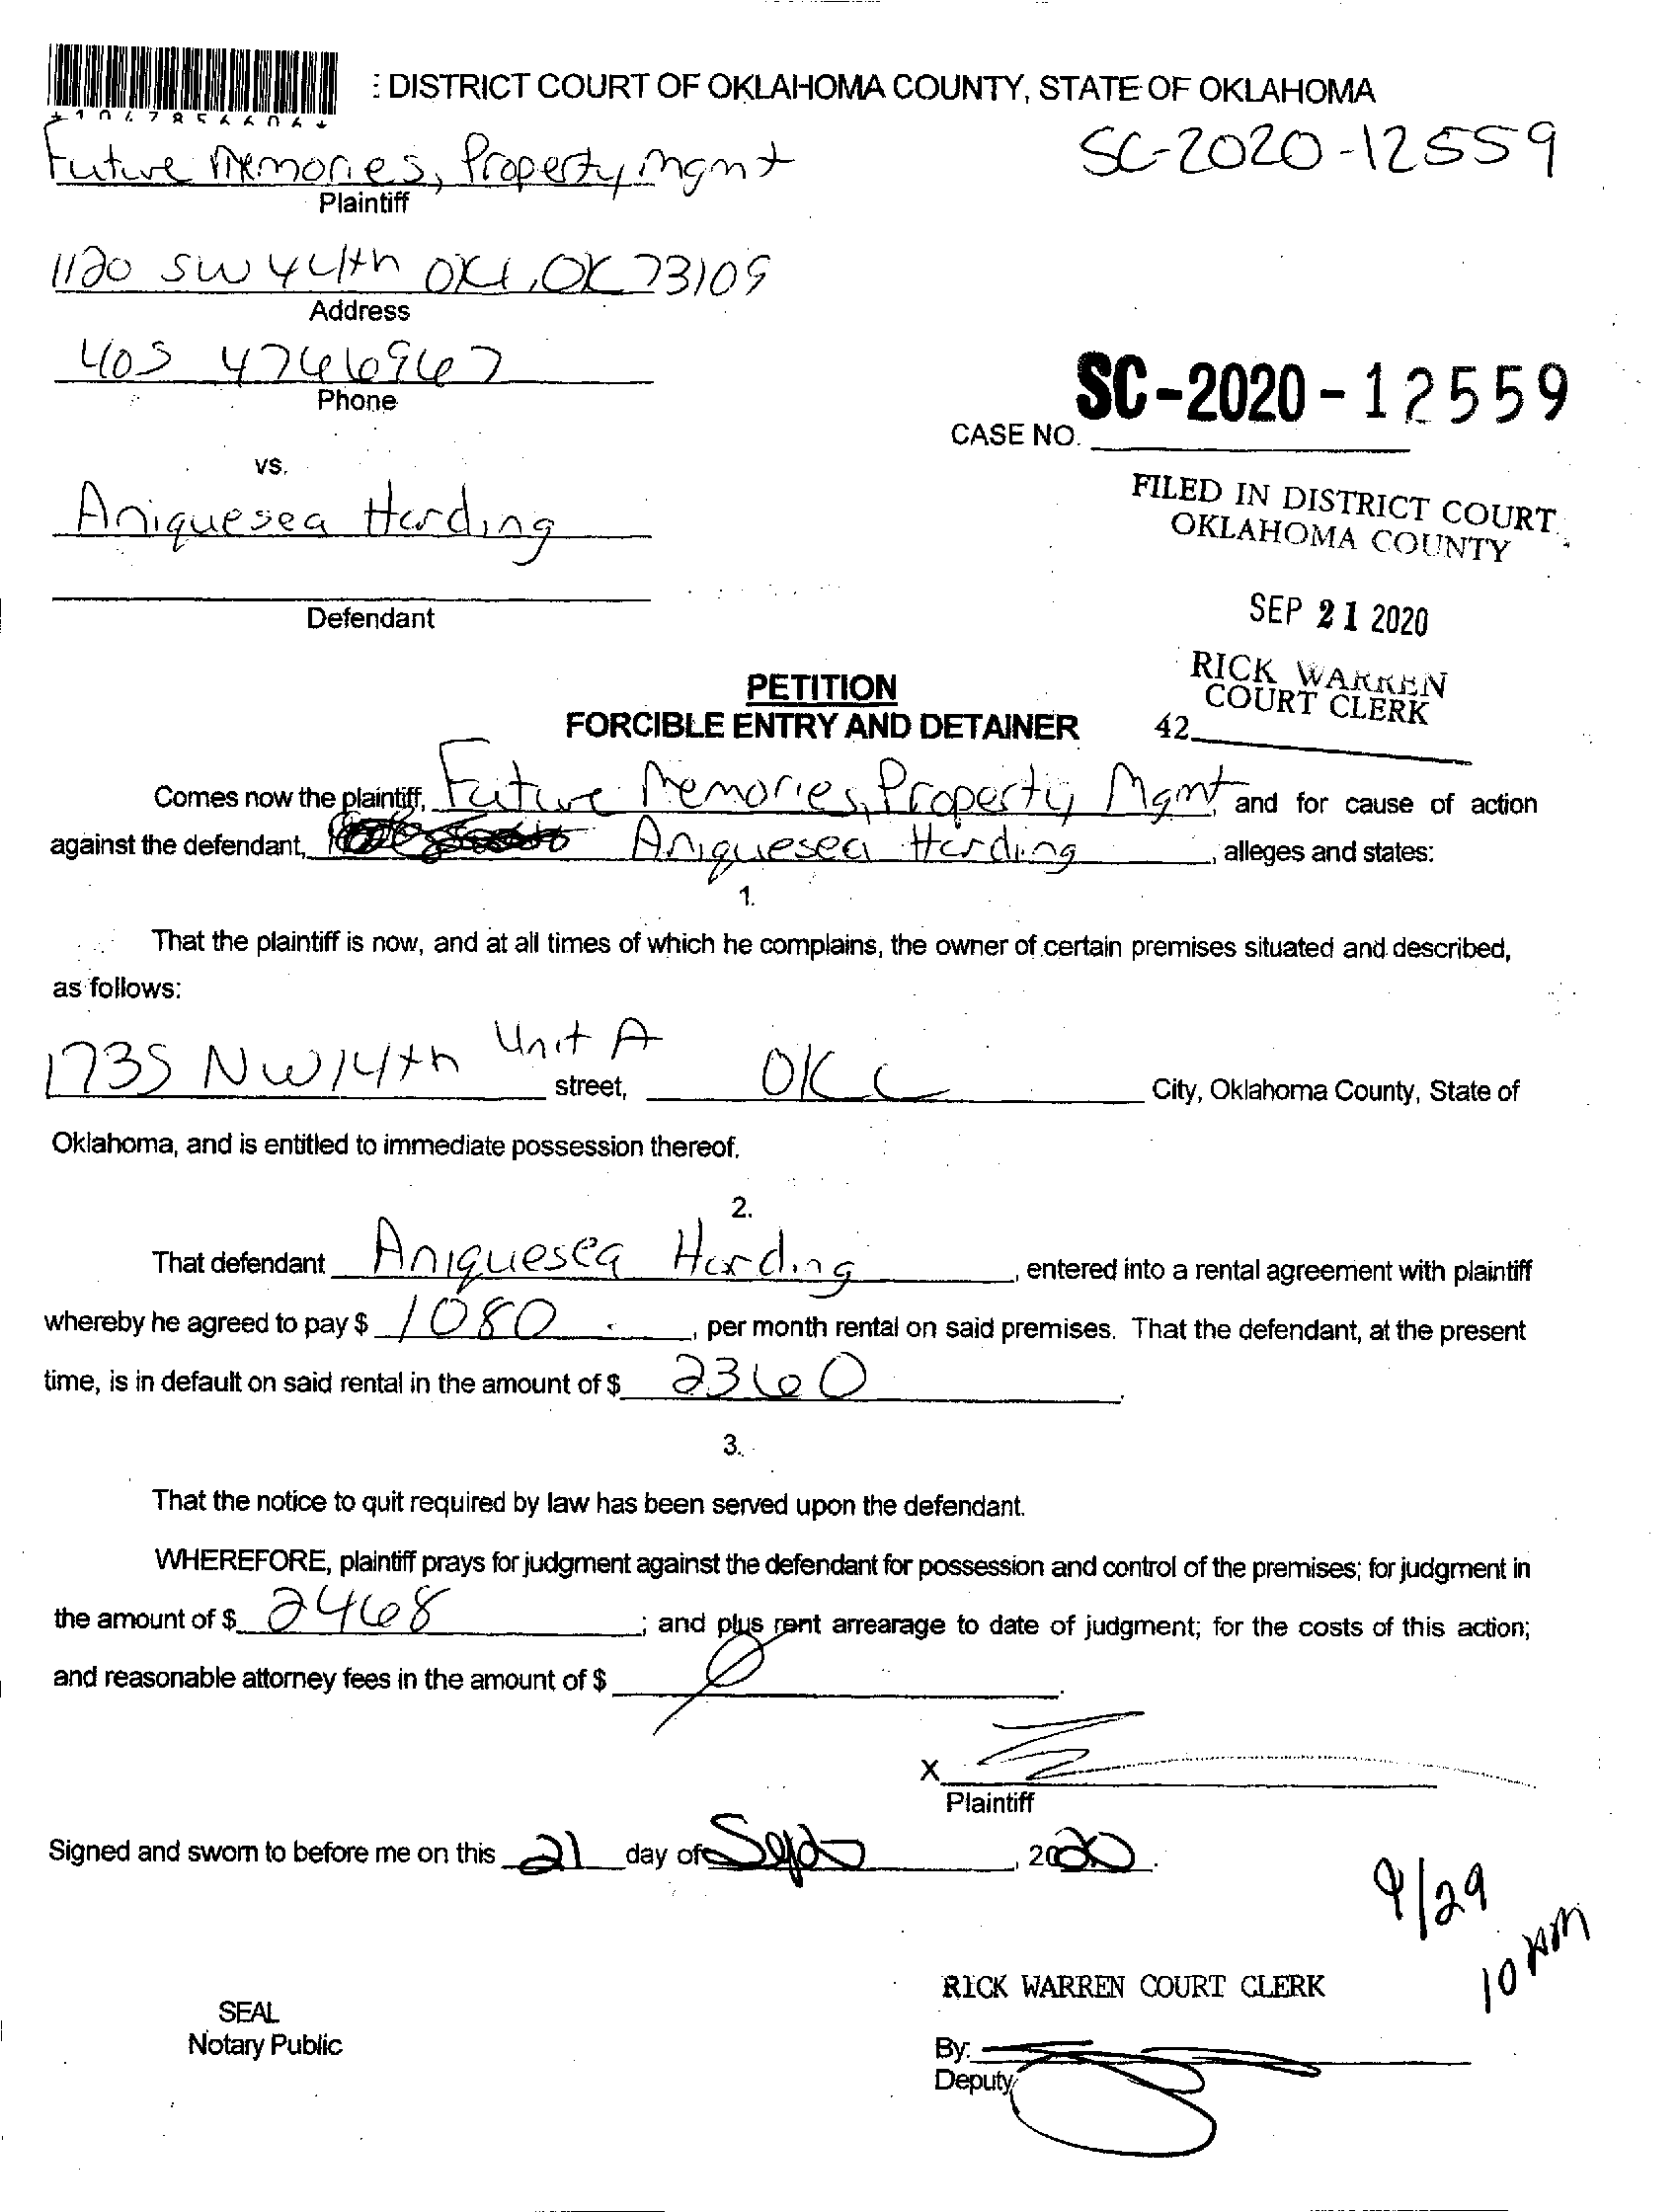 : DISTRICT COURT OF OKLAHOMA COUNTY, STATE OF OKLAHOMA
SC-2020-12559
Future Memories, Property Mgmt
Plaintiff
1120 SW 44th OKC, OK 73109
Address
405 4746967
Phone
SC-2020-12559
CASE NO.
vs.
FILED IN DISTRICT COURT
OKLAHOMA COUNTY
Aniquesea Harding
SEP 21 2020
Defendant
RICK WARREN
COURT CLERK
42
PETITION
FORCIBLE ENTRY AND DETAINER
Comes now the plaintiff, Future Memories, Property Mgmt, and for cause of action
against the defendant, Aniquesea Harding, alleges and states:
1.
That the plaintiff is now, and at all times of which he complains, the owner of certain premises situated and described,
as follows:
1735 NW 14th Unit A street, OKC City, Oklahoma County, State of
Oklahoma, and is entitled to immediate possession thereof.
2.
That defendant Aniquesea Harding, entered into a rental agreement with plaintiff
whereby he agreed to pay $ 1080, per month rental on said premises. That the defendant, at the present
time, is in default on said rental in the amount of $ 2360.
3.
That the notice to quit required by law has been served upon the defendant.
WHEREFORE, plaintiff prays for judgment against the defendant for possession and control of the premises; for judgment in
the amount of $ 2468; and plus rent arrearage to date of judgment; for the costs of this action;
and reasonable attorney fees in the amount of $
X
Plaintiff
Signed and sworn to before me on this 21 day of Sept, 2020.
9/29
10 AM
RICK WARREN COURT CLERK
SEAL
Notary Public
By:
Deputy